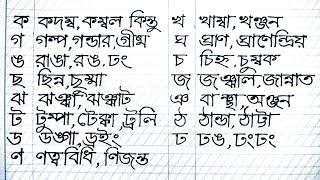 ক কদম্ব, কম্বল কিন্তু খ খাম্বা, খঞ্জন
গ গল্প, গন্ডার, গ্রীম ঘ ঘ্রাণ, ঘ্রাণেন্দ্রিয়
ঙ রাঙা, রঙ, ঢং চ চিহ্ন, চুম্বক
ছ ছিন্ন, চুম্মা জ জঞ্জালি, জান্নাত
ঝ ঝঞ্ঝা, ঝঞ্ঝাট ঞ বাঞ্ছা, অঞ্জন
ট টুম্পা, টেক্কা, ট্রলি ঠ ঠান্ডা, ঠাট্টা
ড উড্ডা, ড্রইং ঢ ঢঙ, ঢংঢং
ণ ণত্ববিধি, ণিজন্ত